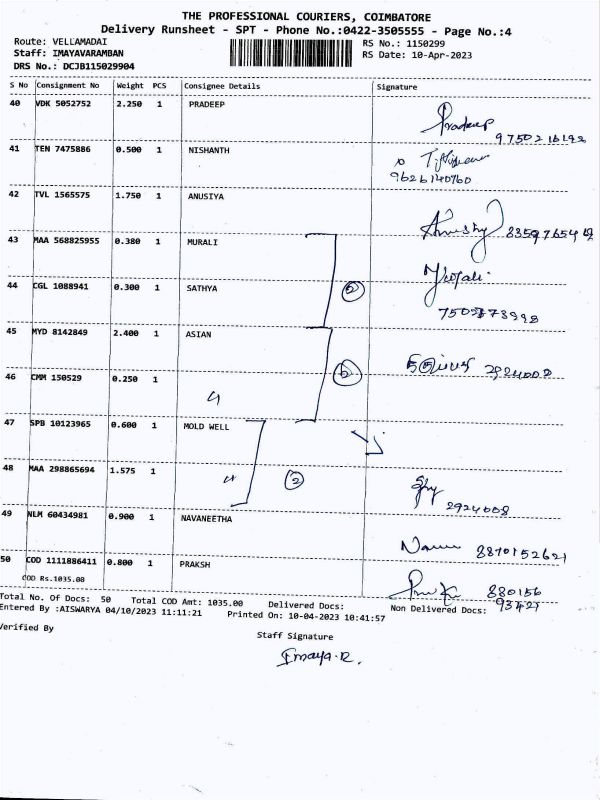 THE PROFESSIONAL COURIERS, COIMBATORE
Delivery Runsheet - SPT - Phone No.:0422-3505555 - Page No.:4
Route: VELLAMADAI RS No.: 1150299
Staff: IMAYAVARAMBAN RS Date: 10-Apr-2023
DRS No.: DCJB115029904
S No Consignment No Weight PCS Consignee Details Signature
40 VDK 5052752 2.250 1 PRADEEP Pradeep
9750216192
41 TEN 7475886 0.500 1 NISHANTH
9626140760
42 TVL 1565575 1.750 1 ANUSIYA
43 MAA 568825955 0.380 1 MURALI
44 CGL 1088941 0.300 1 SATHYA
45 MYD 8142849 2.400 1 ASIAN
2924008
46 CMM 150529 0.250 1
47 SPB 10123965 0.600 1 MOLD WELL
48 MAA 298865694 1.575 1 2
2924008
49 NLM 60434981 0.900 1 NAVANEETHA
8870152621
50 COD 1111886411 0.800 1 PRAKSH
880156
93421
COD Rs.1035.00
Total No. Of Docs: 50 Total COD Amt: 1035.00 Delivered Docs: Non Delivered Docs:
Entered By :AISWARYA 04/10/2023 11:11:21 Printed On: 10-04-2023 10:41:57
Verified By
Staff Signature
Imaya.R.